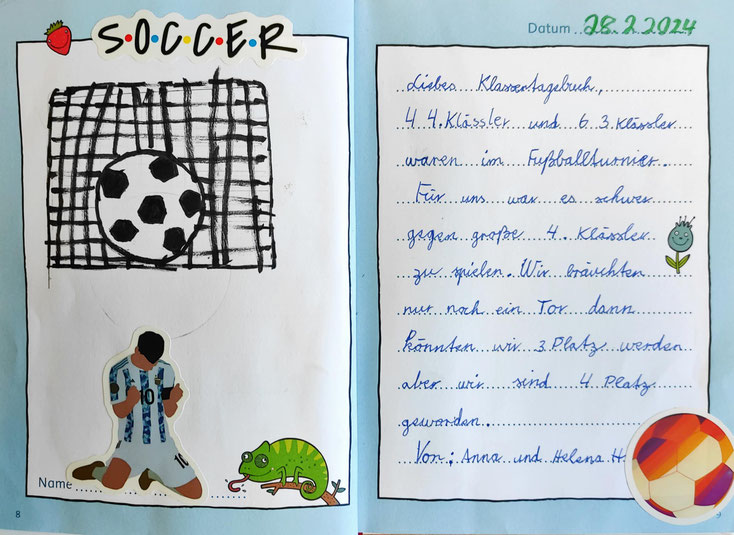 SOCCER
10
10
Name
8
Datum 28.2.2024
Liebes Klassentagebuch,
4 4.Klässler und 6 3.Klässler
waren im Fußballturnier.
Für uns war es schwer
gegen große 4. Klässler
zu spielen. Wir bräuchten
nur noch ein Tor dann
könnten wir 3.Platz werden
aber wir sind 4. Platz
geworden.
Von: Anna und Helena H
9